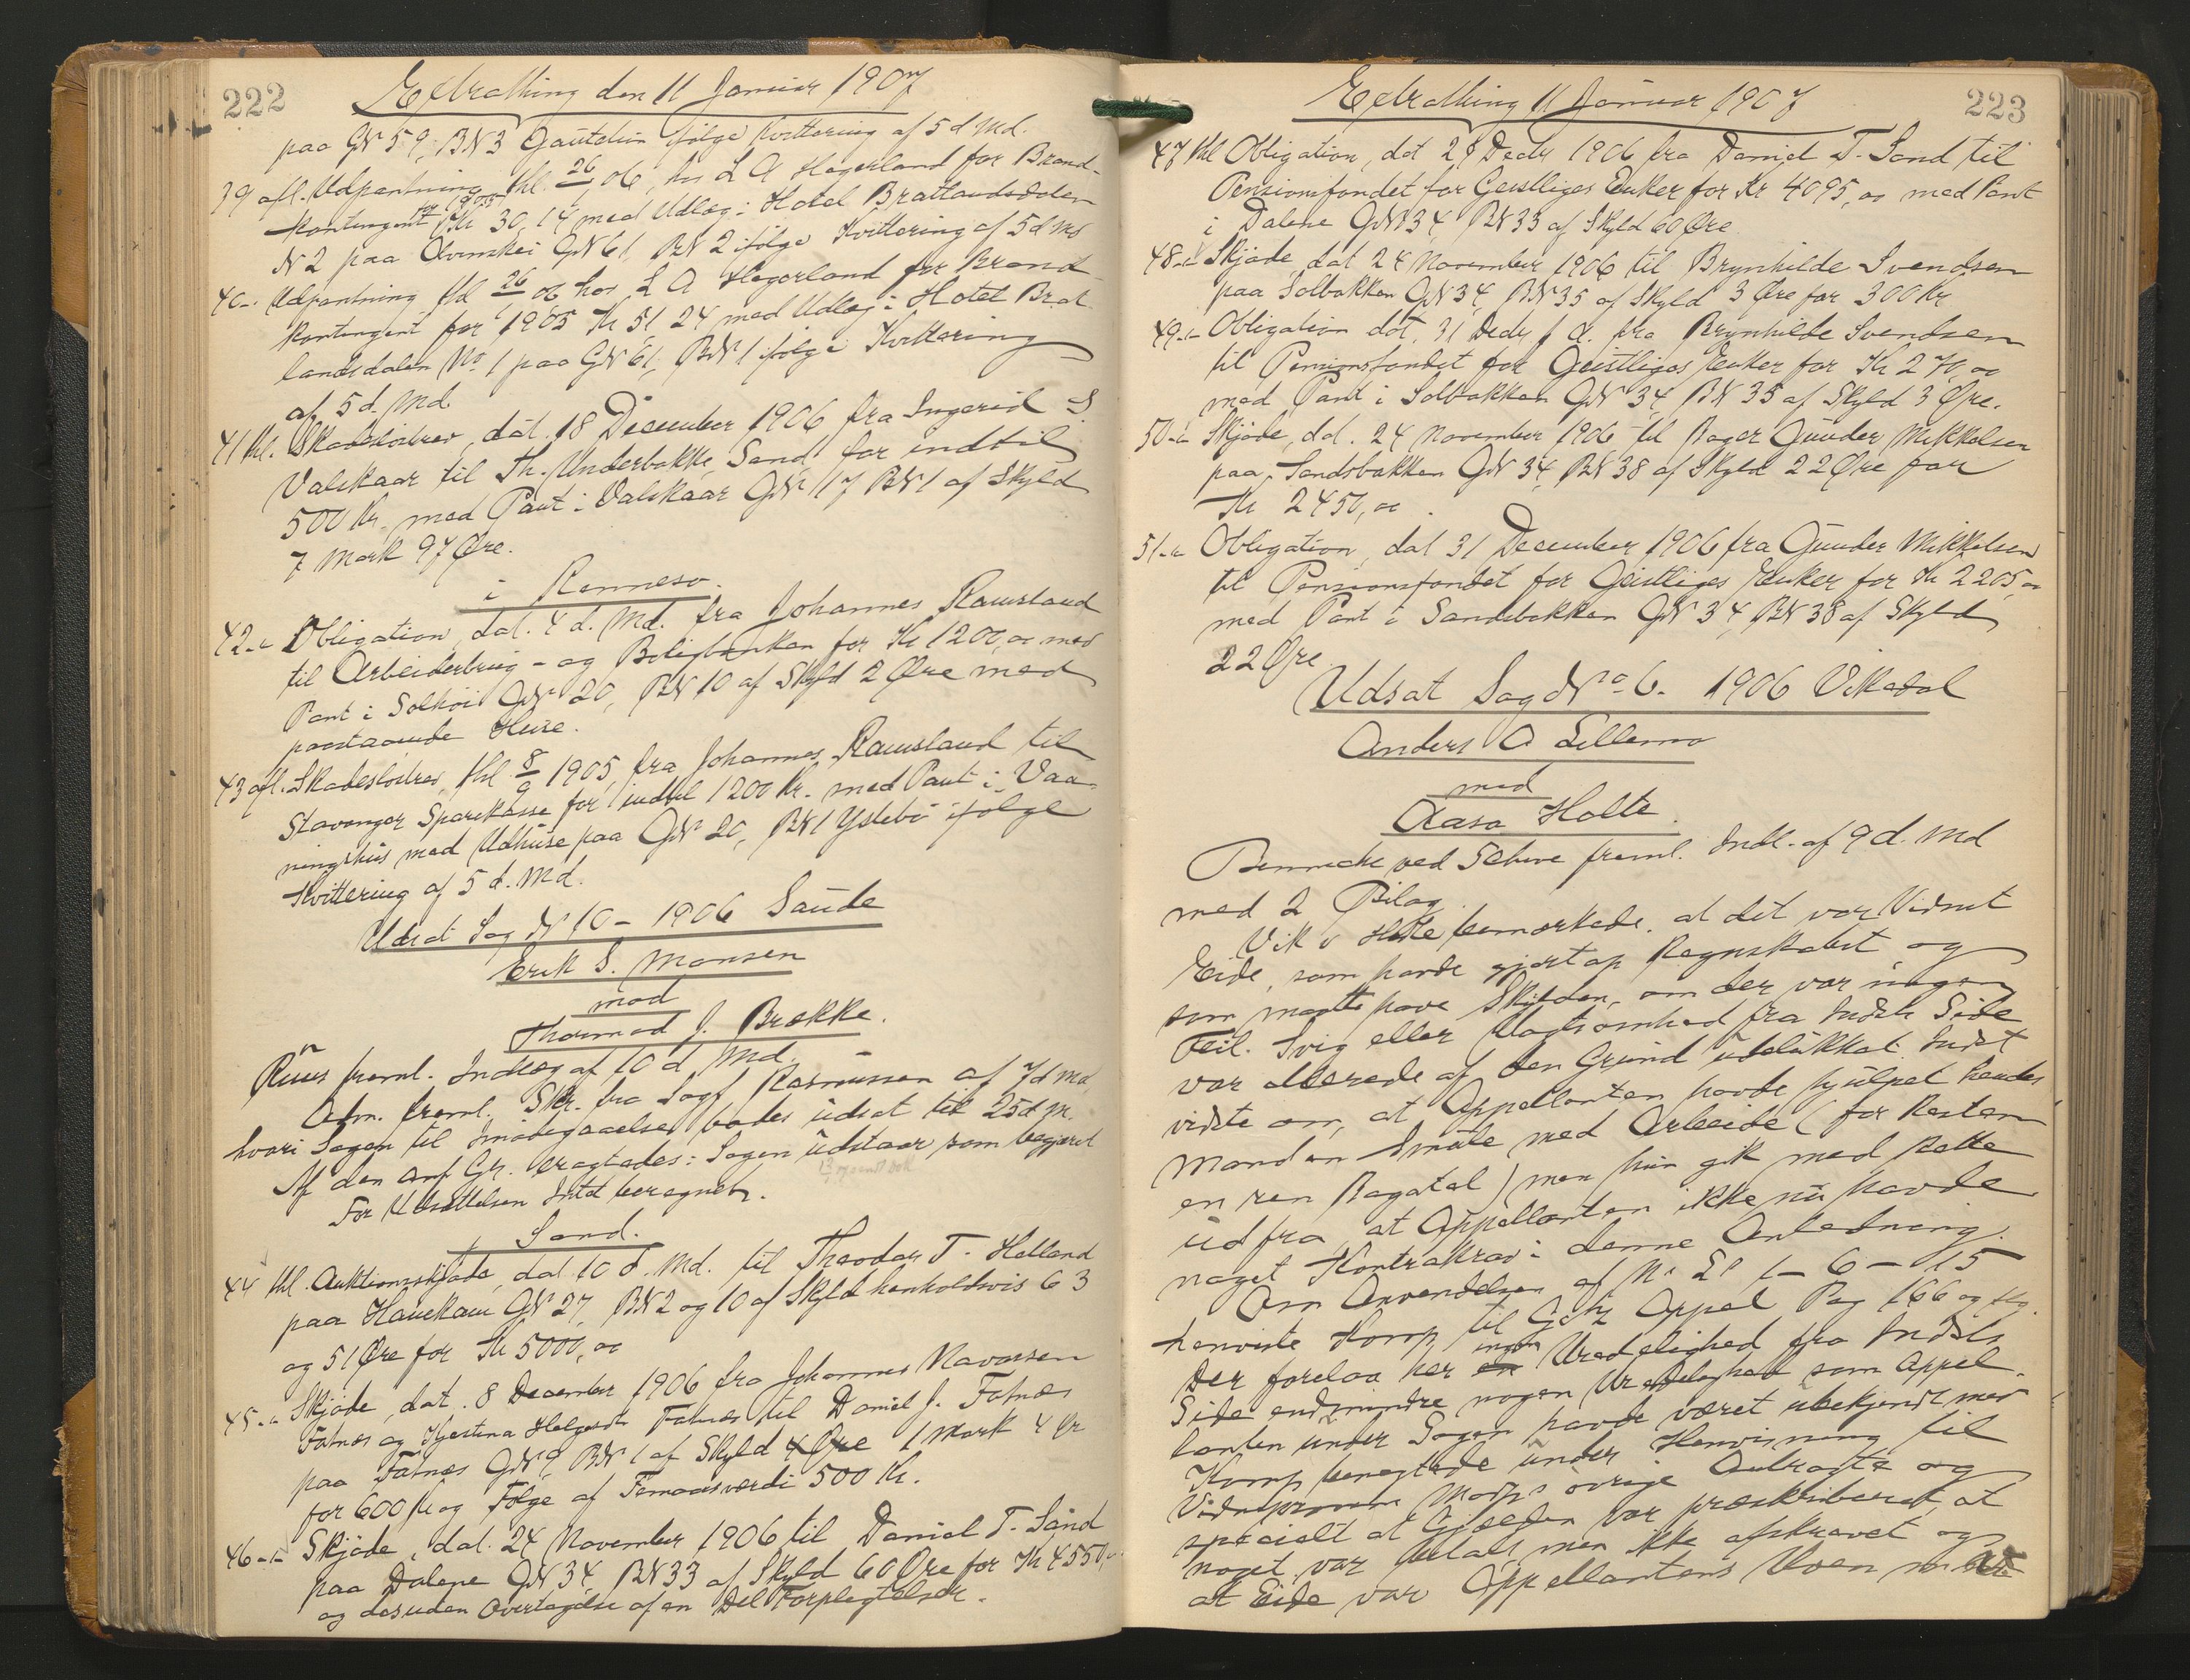 222
Extrathing den 11 Januar 1907
paa GN 59, BN 3 følge Kvittering af 5 d. Md.
39 afl. Udpantning, thl. 26/ 06, hos L A Hegerland for Brand-
kontingent for 1905 Kr 30,14 med Udlæg i Hotel Bratlandsdalen
N 2 paa GN 61, BN 2 ifølge Kvittering af 5 d Md
40 -"- Udpantning thl 26/ 06 hos L A Hegerland for Brand
kontingent for 1905 Kr 51 24 med Udlæg i Hotel Brat
landsdalen No 1 paa GN 61, BN 1 ifølge Kvittering
af 5 d. Md
41 thl. Skadesløsbrev, dat. 18 December 1906 fra Ingerid S
Valskaar til Th. Underbakke, Sand for indtil
500 Kr. med Pant i Valskaar GN 117 BN 1 af Skyld
7 Mark 97 Øre.
i Rennesø.
42 -"- Obligation, dat. 4 d. Md. fra Johannes Ramsland
til Arbeiderbrug- og Boligbanken for Kr 1200,00 med
Pant i Solhøi GN 20, BN 10 af Skyld 2 Øre med
paastaaende Huse.
43 afl. Skadesløsbrev, thl 8/9 1905, fra Johannes Ramsland til
Stavanger Sparekasse for indtil 1200 Kr. med Pant i Vaa-
ningshus med Udhuse paa GN 20, BN 1 Ystebø ifølge
Kvittering af 5 d. Md.
Udsat Sag N 10 - 1906 Saude
Erik S. Monsen
mod
Thormod J. Brække.
Ruus freml. Indlæg af 10 d Md.
Adm. freml. Skr. fra Sagf Rasmussen af 7 d Md,
hvori Sagen til Imødegaaelse bades udsat til 25 d M.
Af den anf Gr. eragtedes: Sagen udstaar som begjært
For Udsættelsen Intet beregnet.
Sand.
44 thl. Auktionsskjøde, dat 10 d. Md. til Theodor T. Helland
paa Hauekam GN 27, BN 2 og 10 af Skyld henholdsvis 63
og 51 Øre for Kr 5000,00
45 -"- Skjøde, dat. 8 December 1906 fra Johannes Navarsen
Fatnæs og Kjestina Helgesdtr Fatnæs til Daniel J. Fatnæs
paa Fatnæs GN 9, BN 1 af Skyld 4 Øre 1 Mark 4 Ør
for 600 Kr og Følge af Femaarsværdi 500 Kr.
46 -"- Skjøde, dat. 24 November 1906 til Daniel T. Sand
paa Dalene GN 34, BN 33 af Skyld 60 Øre for Kr 4550,00
og desuden Overtagelse af en Del Forpligtelser.
223
Extrathing 11 Januar 1907
47 thl Obligation, dat 29 Decbr 1906 fra Daniel T. Sand til
Pensionsfondet for Geistliges Enker for Kr 4095,00 med Pant
i Dalene GN 34, BN 33 af Skyld 60 Øre
48 -"- Skjøde, dat 24 November 1906 til Brynhilde Svendsen
paa Solbakken GN 34, BN 35 af Skyld 3 Øre for 300 Kr
49 -"- Obligation dat. 31 Decbr f A. fra Brynhilde Svendsen
til Pensionsfondet for Geistliges Enker for Kr 270,00
med Pant i Solbakken GN 34, BN 35 af Skyld 3 Øre.
50 -"- Skjøde, dat. 24 November 1906 til Bager Gunder Mikkelsen
paa Sandsbakken GN 34, BN 38 af Skyld 22 Øre for
Kr 2450,00.
51 -"- Obligation, dat 31 December 1906 fra Gunder Mikkelsen
til Pensionsfondet for Geistliges Enker for Kr 2205,00
med Pant i Sandsbakken GN 34, BN 38 af Skyld
22 Øre
Udsat Sag No 6 - 1906 Vikedal
Anders O
mod
Aasa Holte.
ved Schive freml. Indl. af 9 d. Md
med 2 Bilag.
Vik v Holte bemærkede, at det var Vidnet
Eide, som havde gjort op Regnskabet og
som maatte have Skylden, om der var nogen
Feil. Svig eller Uagtsomhed fra Indst Side
var allerede af den Grund udelukket. Indst
vidste om, at Appellanten havde hjulpet hendes
Mand en Smule med Arbeide (for Resten
en ren Bagatel) men hun gik med Rette
ud fra, at Appellanten ikke nu havde
noget Kontrakrav i denne Anledning.
Om Anvendelsen af N. L. 1 - 6 - 15
henviste Komp til Getz Appel Pag 166 og flg.
Der forelaa her ingen Uredelighed fra Indsts
Side endmindre nogen Uredelighed som Appel-
lanten under Sagen havde været ubekjendt med
Komp benegtede under Henvisning til
Vidneprovene Modps øvrige Anbragte og
specielt at Gjælden var præskriberet, at
noget var betalt men ikke afskrevet og
at Eide var Appellantens Uven